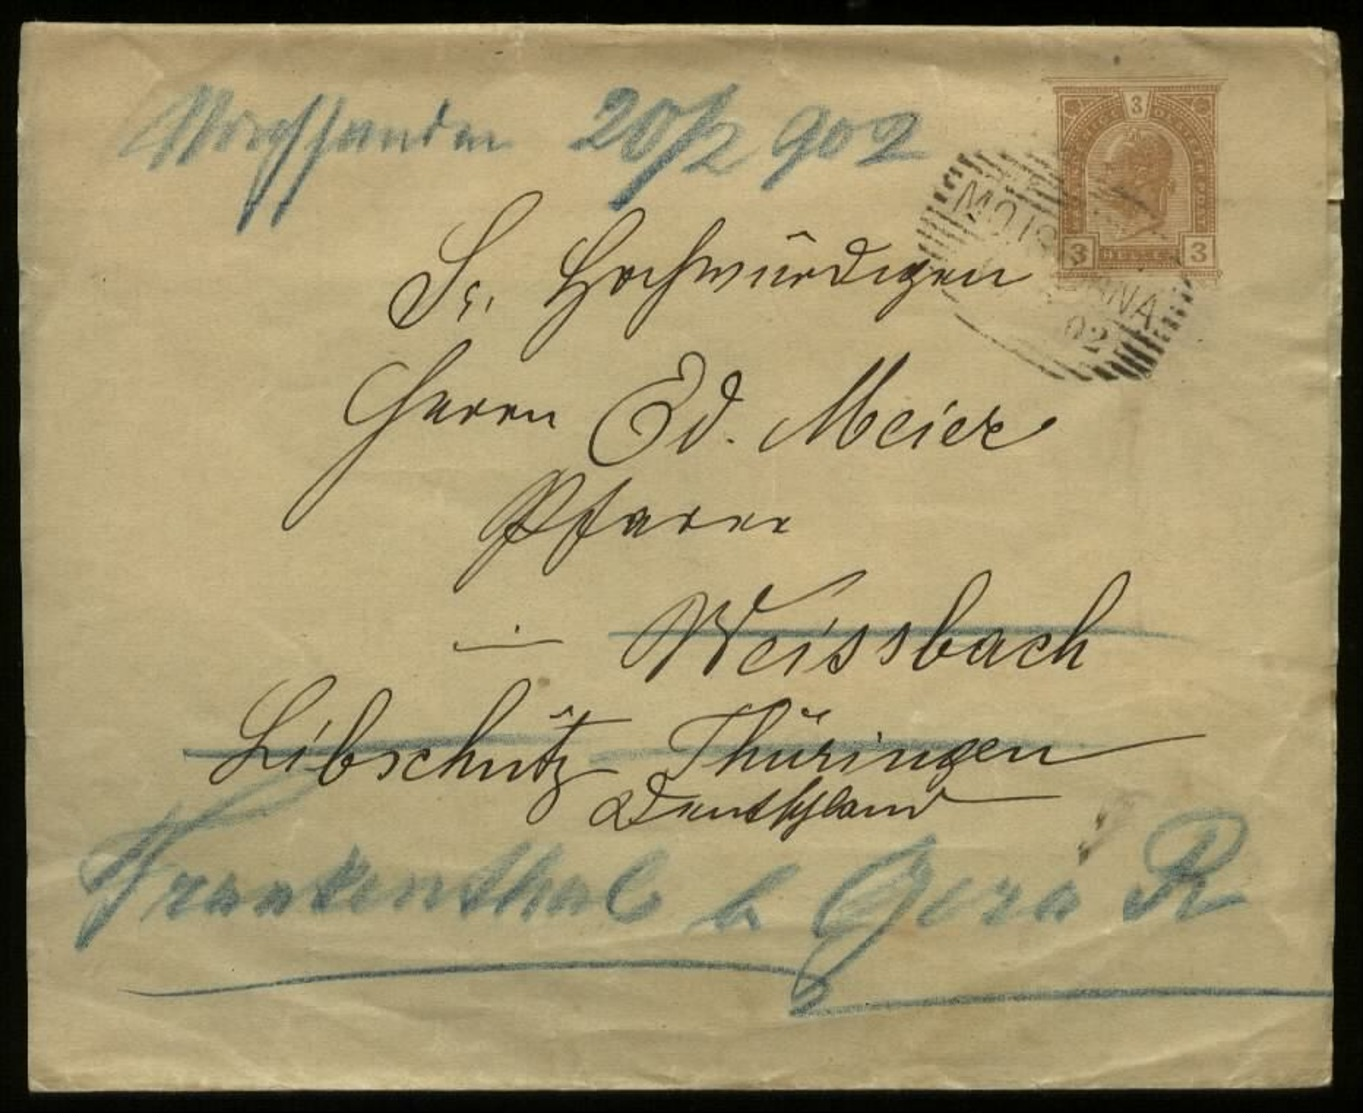 Nachsenden 20/2 902
3
3 HELLER 3
MOIS ANA
02
Sr. Hochwürdigen
Herrn Ed. Meier
Pfarrer
in Weissbach
Libschütz Thüringen
Deutschland
Frankenthal b Gera R